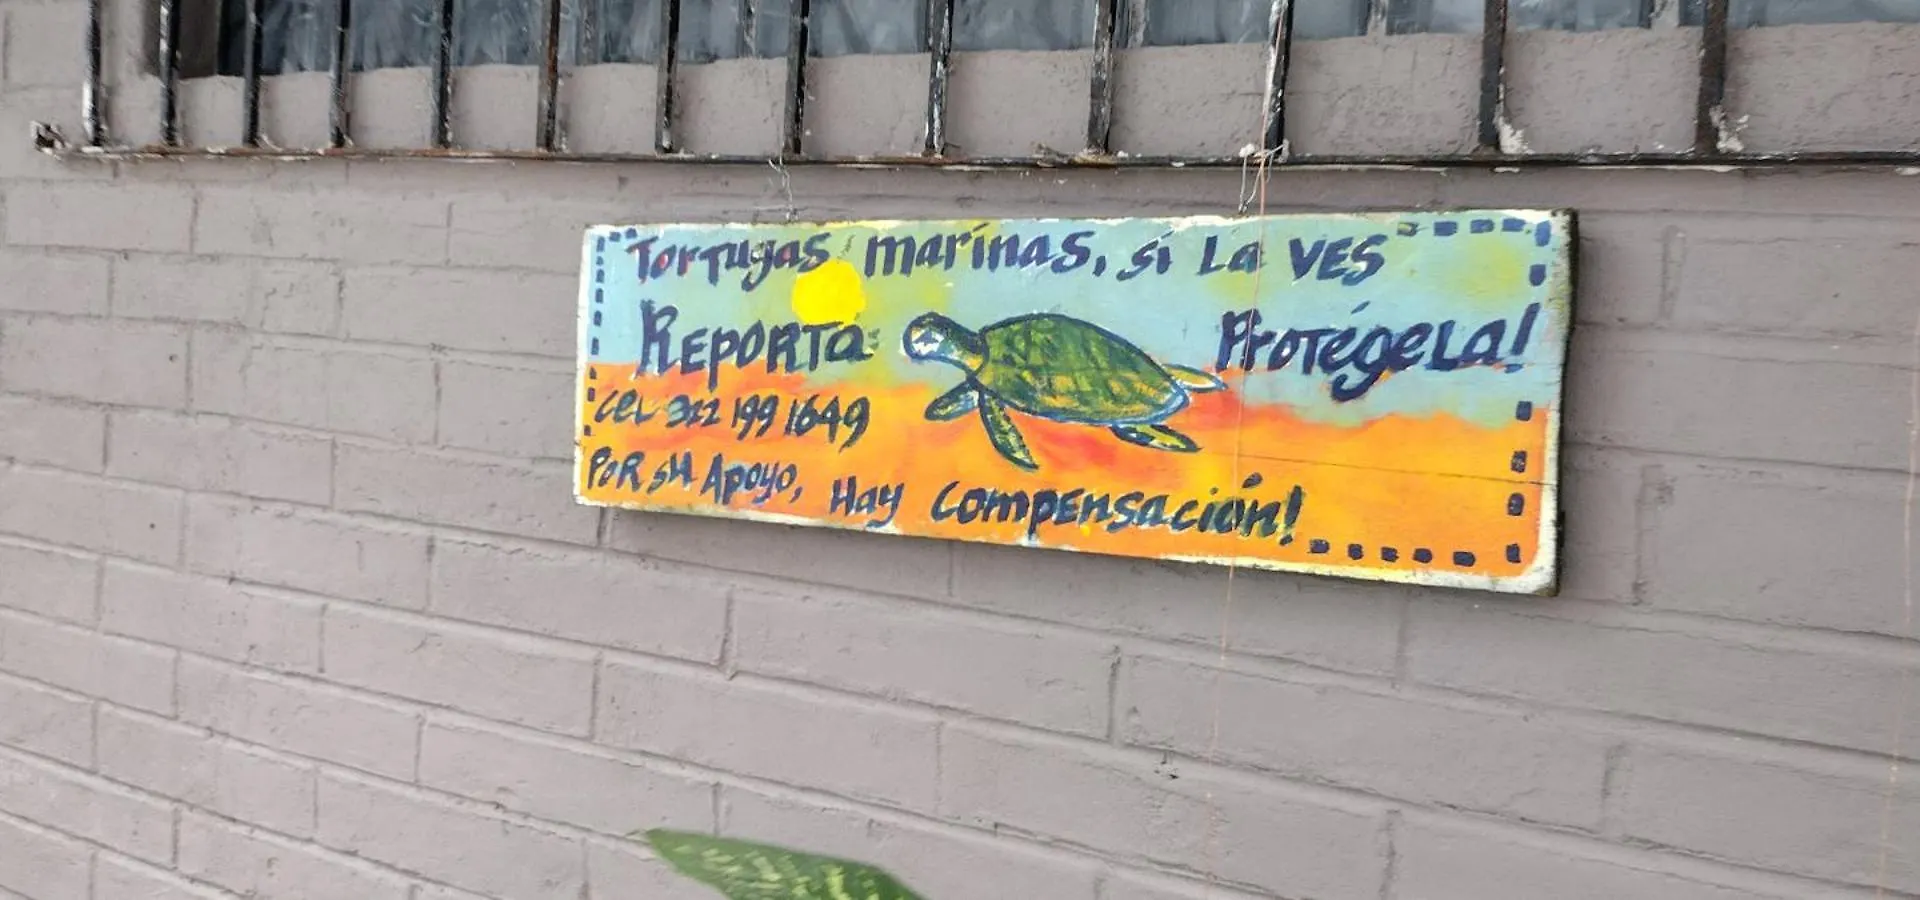 Tortugas marinas, si la ves
Reporta Protégela!
Cel 322 199 1649
Por su Apoyo, Hay Compensación!